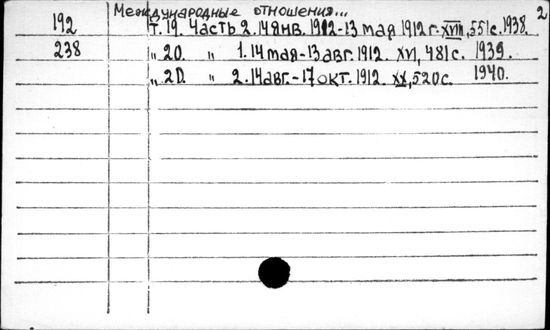 Международные отношения... 2
192 т. 19. Часть 2. 14 янв. 1912-13 мая 1912 г. XVIII, 551 с. 1938.
238 „ 20. „ 1. 14 мая-13 авг. 1912. XVI, 481 с. 1939.
„ 20. „ 2. 14 авг.-17 окт. 1912. XX, 520 с. 1940.